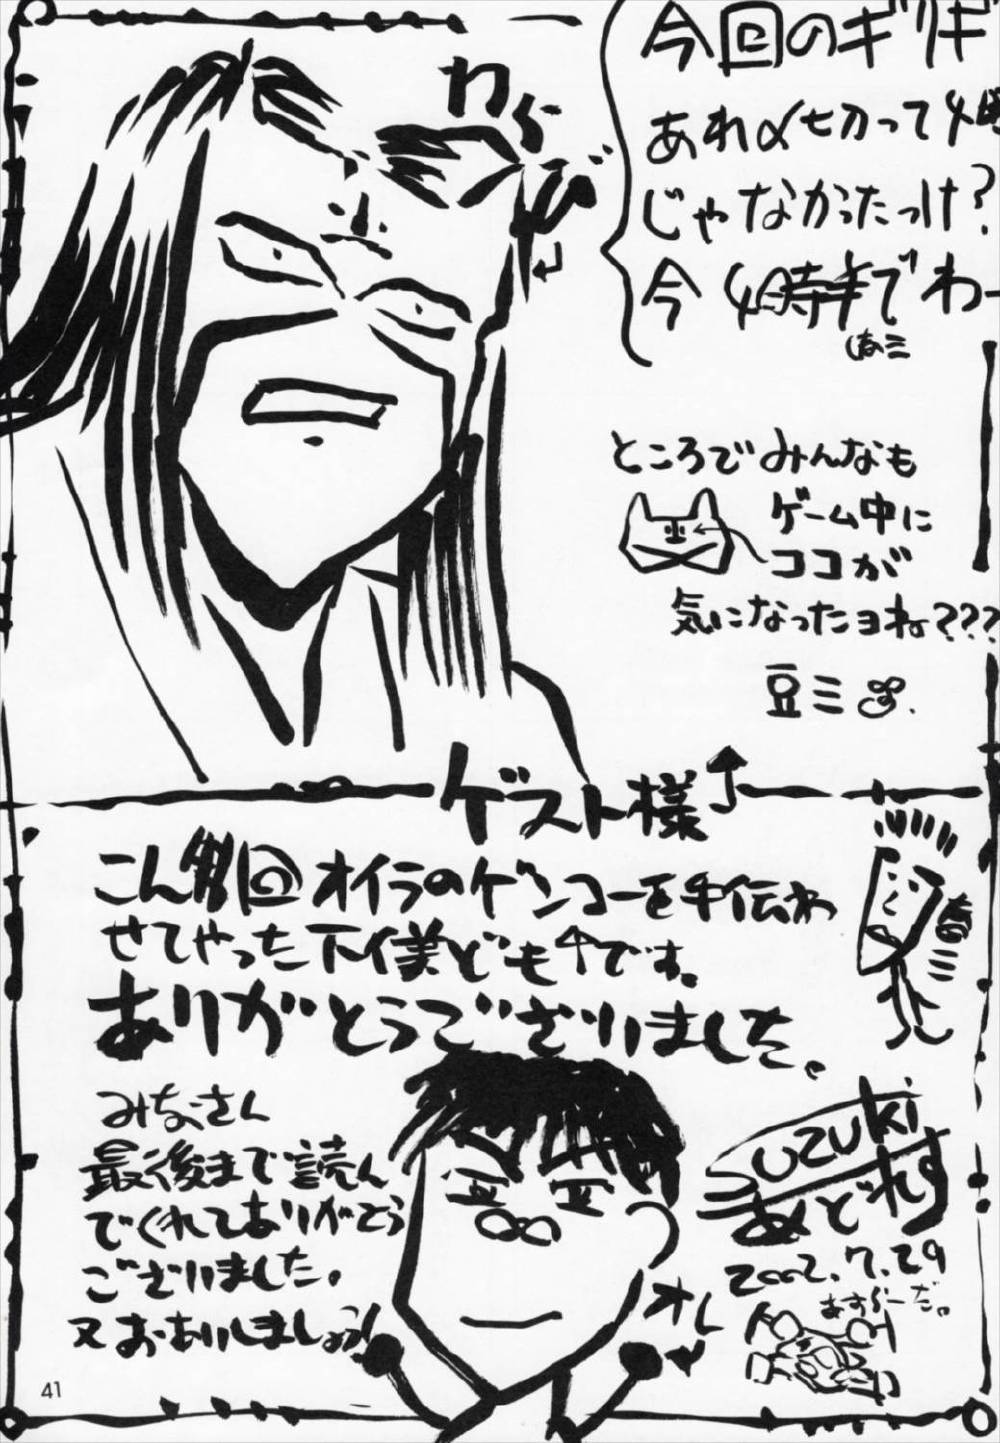 今回のギリギ
あれ〆切って4時
じゃなかったっけ?
今 4時半でわー
わらび
ところでみんなも
ゲーム中に
ココが
気になったヨね???
豆ミ
ゲスト様↑
こん回オイラのゲンコーを手伝わ
せてやった下僕ども↑です。
ありがとうございました。
春ミ
みなさん
最後まで読ん
でくれてありがとう
ございました。
又おあいしましょう!
オレ
SUZUKi
あどれす
2002.7.29
あすらーだ。
41